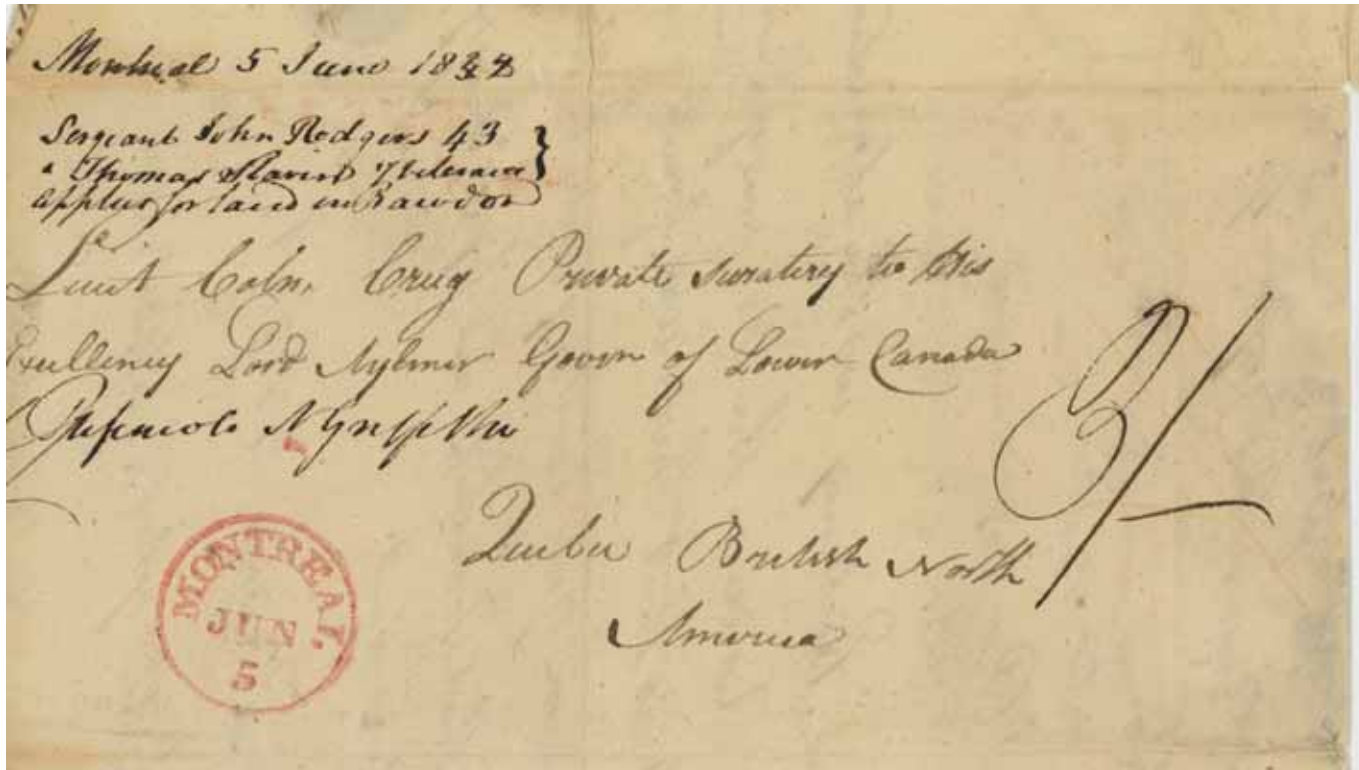 Montreal 5 June 1832
Sergeant John Rodgers 43
" Thomas
applies for land in Rawdon
Lieut Coln. Craig Private Secratery to His
Excellency Lord Aylmer Govenr of Lower Canada
Quebec British North
America
3/
MONTREAL
JUN
5